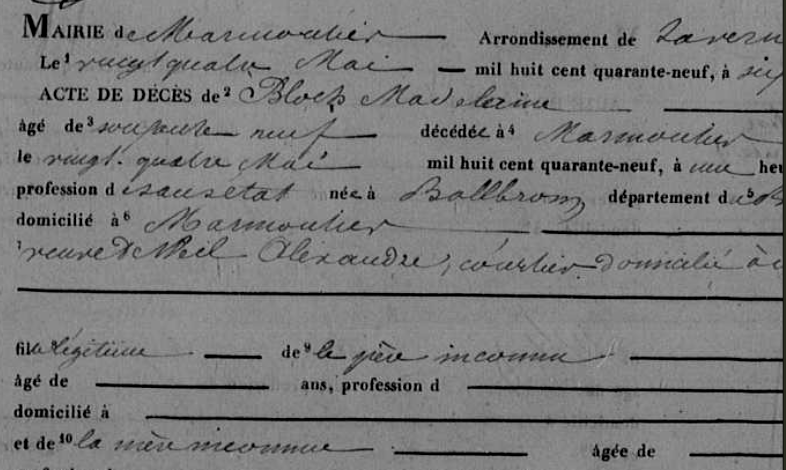 MAIRIE de Marmoutier Arrondissement de Savern
Le¹ vingt quatre Mai — mil huit cent quarante-neuf, à six
ACTE DE DÉCÈS de² Bloch Madeleine
âgé de³ soixante neuf décédée à⁴ Marmoutier
le vingt-quatre Mai mil huit cent quarante-neuf, à une heu
profession d sans état née à Ballbronn département du⁵ B
domicilié à⁶ Marmoutier
⁷ veuve de Weil Alexandre, courtier domicilié à
fille légitime de⁹ le père inconnu
âgé de ans, profession d
domicilié à
et de¹⁰ la mère inconnue âgée de